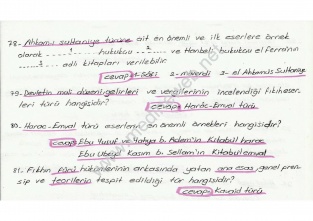 78- Ahkam-ı sultaniye türüne ait en önemli ve ilk eserlere örnek
olarak ....1.... hukukcu ....2.... ve Hanbeli hukukcu el Ferra'nın
....3.... adlı kitapları verilebilir
cevap 1- Şafii 2- maverdi 3- el Ahkamüs Sultaniye
79. Devletin mali düzeni, gelirleri ve vergilerinin incelendiği fıkıh eser-
leri türü hangisidir?
cevap Harâc-Emval türü.
80. Harac-Emval türü eserlerin en önemli örnekleri hangisidir?
cevap Ebu Yusuf ve Yahya b. Adem'in Kitabül harac
Ebu Ubeyd Kasım b. Sellam'ın Kitabül emval
81. Fıkhın fürû hükümlerinin arkasında yatan ana esas, genel pren-
sip ve teorilerin tespit edildiği tür hangisidir?
cevap Kavaid türü.